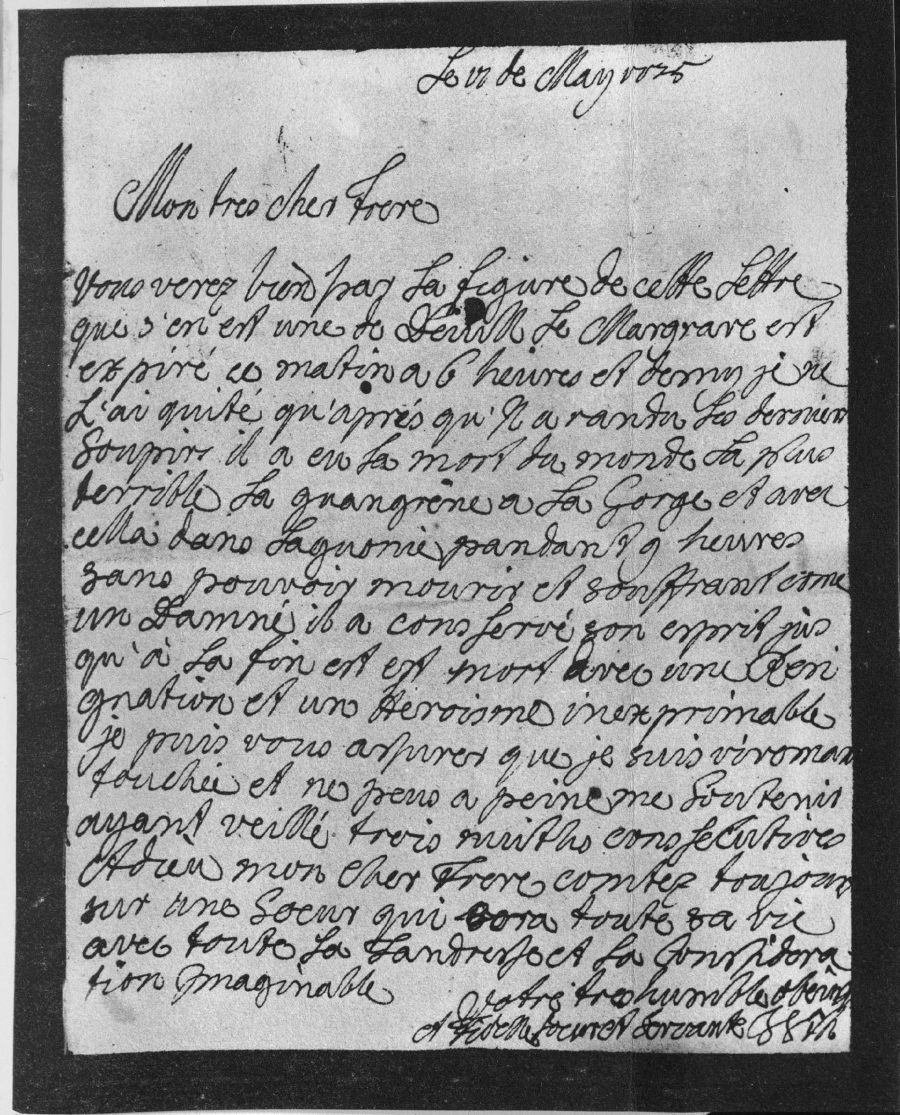 Le 17 de May 1735
Mon tres cher Frere
Vous verez bien par la figure de cette lettre
que s'en est une de Deuill le Margrave est
expiré ce matin a 6 heures et demy je ne
l'ai quité qu'aprés qu'Il a randu les dernier
Soupirs il a eu la mort du monde la plus
terrible la guangrène a la Gorge et avec
cella dans laguonie pandant 9 heures
sans pouvoir mourir et souffrant come
un Damné il a conservé son esprit jus
qu'à la fin est est mort avec une Resi
gnation et un Heroisme inexprimable
je puis vous assurer que je suis viveman
touchée et ne peus a peine me Soutenir
ayant veillé trois nuiths conssecutives
Adieu mon Cher Frere comtez toujours
sur une Soeur qui sera toute sa vie
avec toute la Tandresse et la Conssidera
tion Imaginable
Votre tres humble
et Fidelle soeur et servante